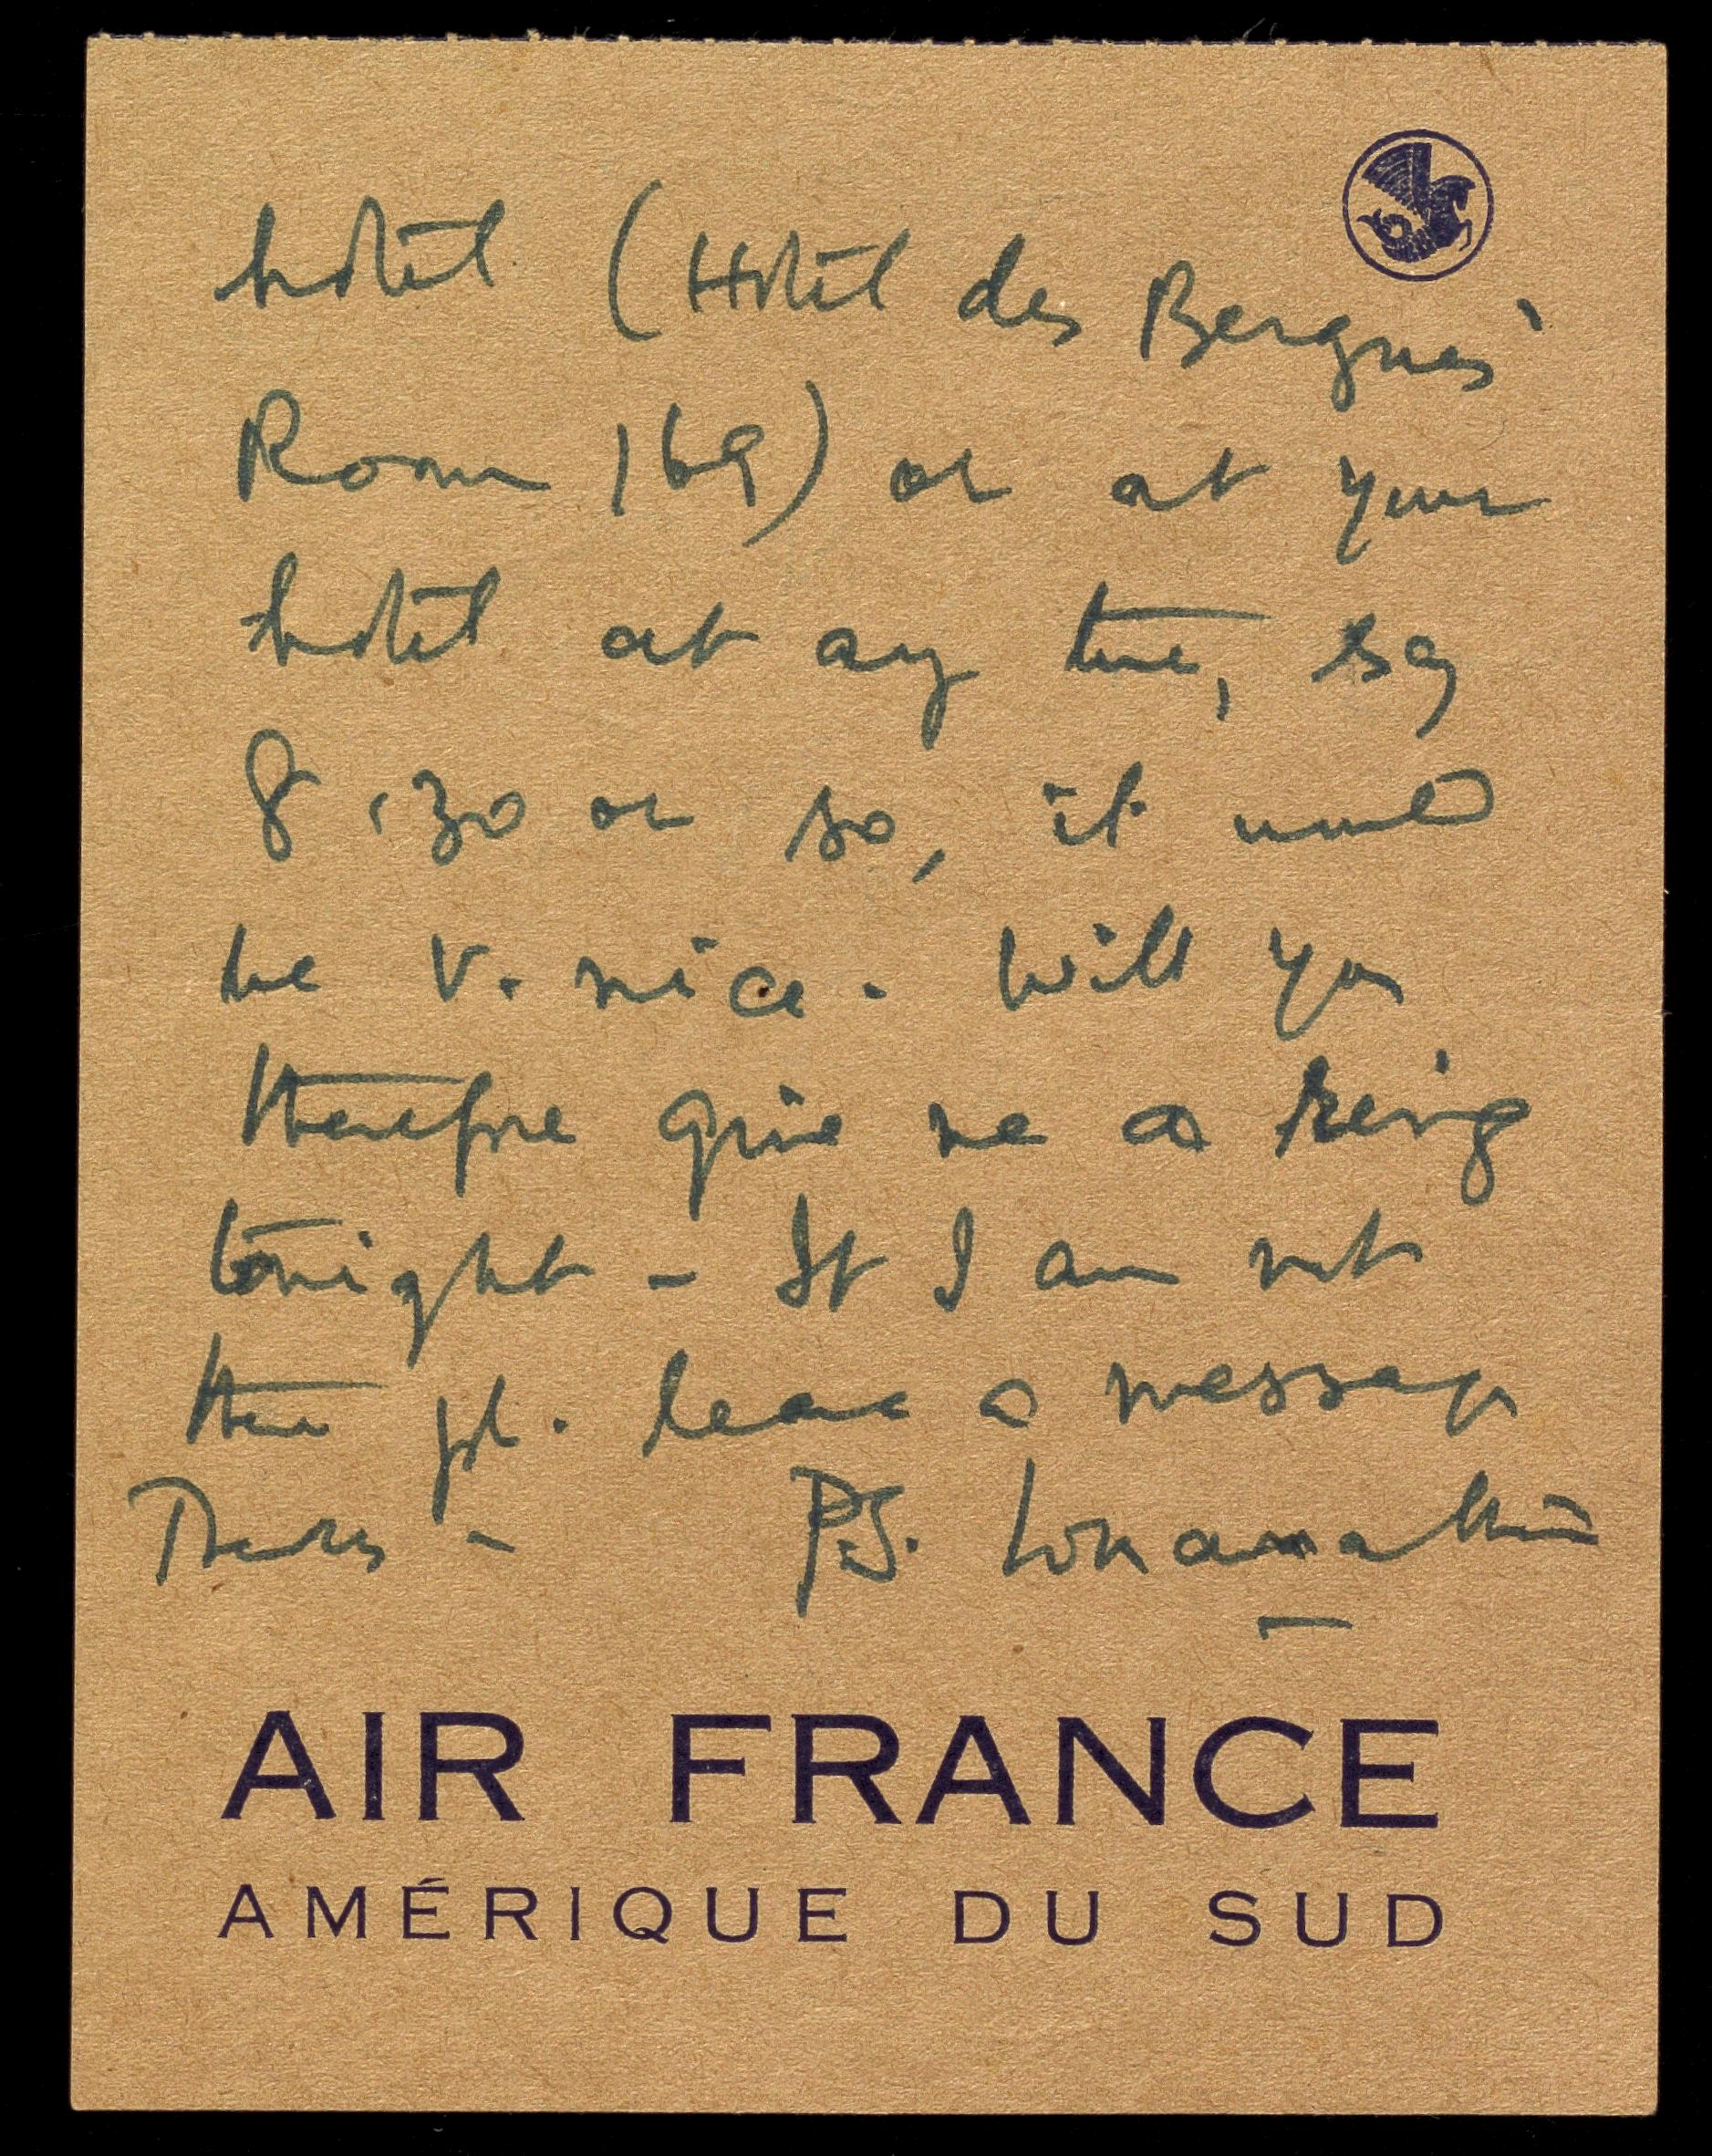 hotel (Hotel des Bergues
Room 169) or at your
hotel at any time, say
8.30 or so, it would
be v. nice. Will you
therefore give me a ring
tonight - If I am not
there pl. leave a message
Thanks - P.S. Lokanathan
AIR FRANCE
AMÉRIQUE DU SUD